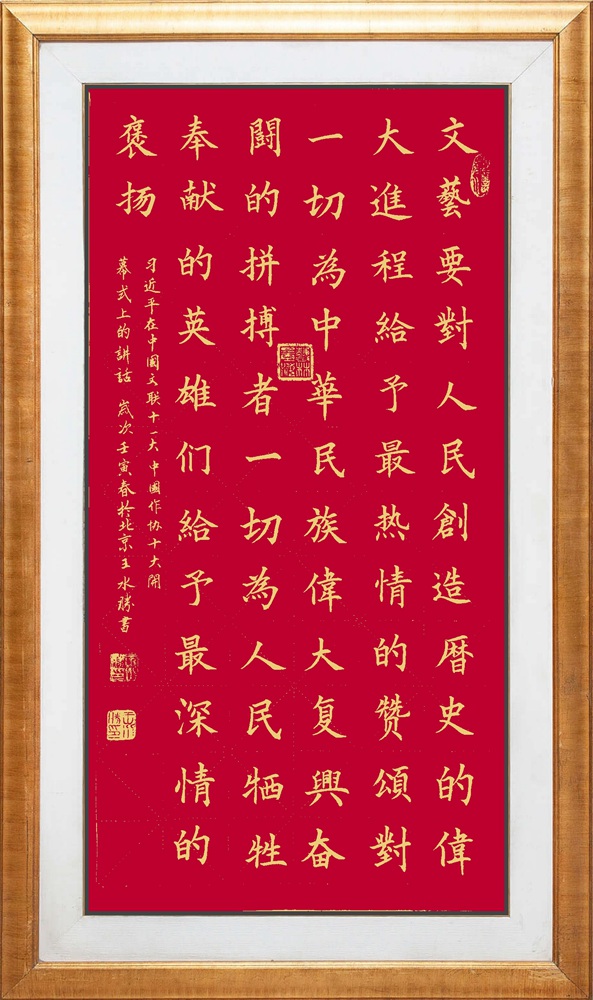 文藝要對人民創造曆史的偉
大進程給予最热情的赞頌對
一切為中華民族偉大复興奋
闘的拼搏者一切為人民牺牲
奉献的英雄们給予最深情的
褒扬
习近平在中國文联十一大中國作协十大開
幕式上的讲话 嵗次壬寅春於北京王水勝書